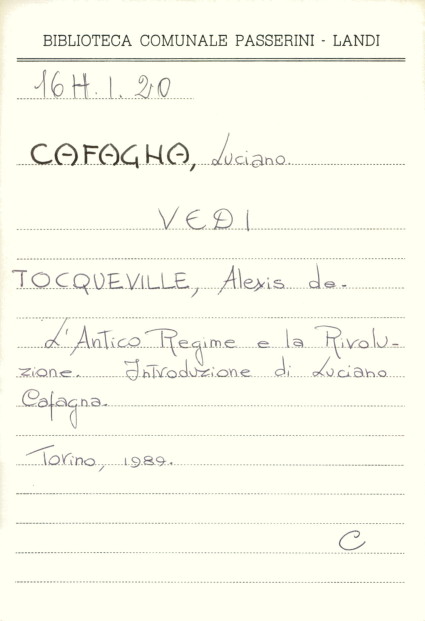 BIBLIOTECA COMUNALE PASSERINI - LANDI
16H.I.20
CAFAGNA, Luciano
VEDI
TOCQUEVILLE, Alexis de.
L'Antico Regime e la Rivolu-
zione. Introduzione di Luciano
Cafagna.
Torino, 1989.
C